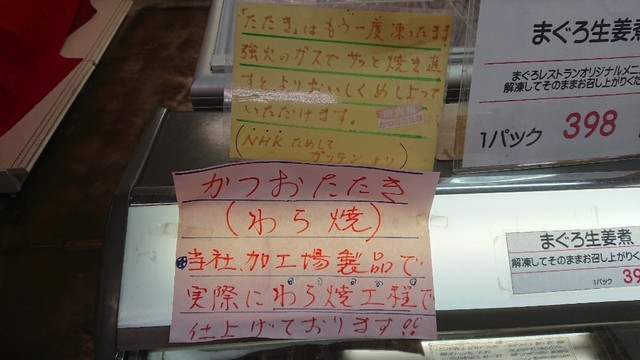 「たたき」は もう一度 凍ったまま
強火のガスで サッと焼き直
すと、よりおいしくめし上って
いただけます。
(NHK ためして
ガッテン より)
かつおたたき
(わら焼)
当社、加工場製品で
実際にわら焼工程で
仕上げております!!
まぐろ生姜煮
まぐろレストランオリジナルメニ
解凍してそのままお召し上がりくだ
1パック 398
まぐろ生姜煮
解凍してそのままお召し上がりく
1パック 39